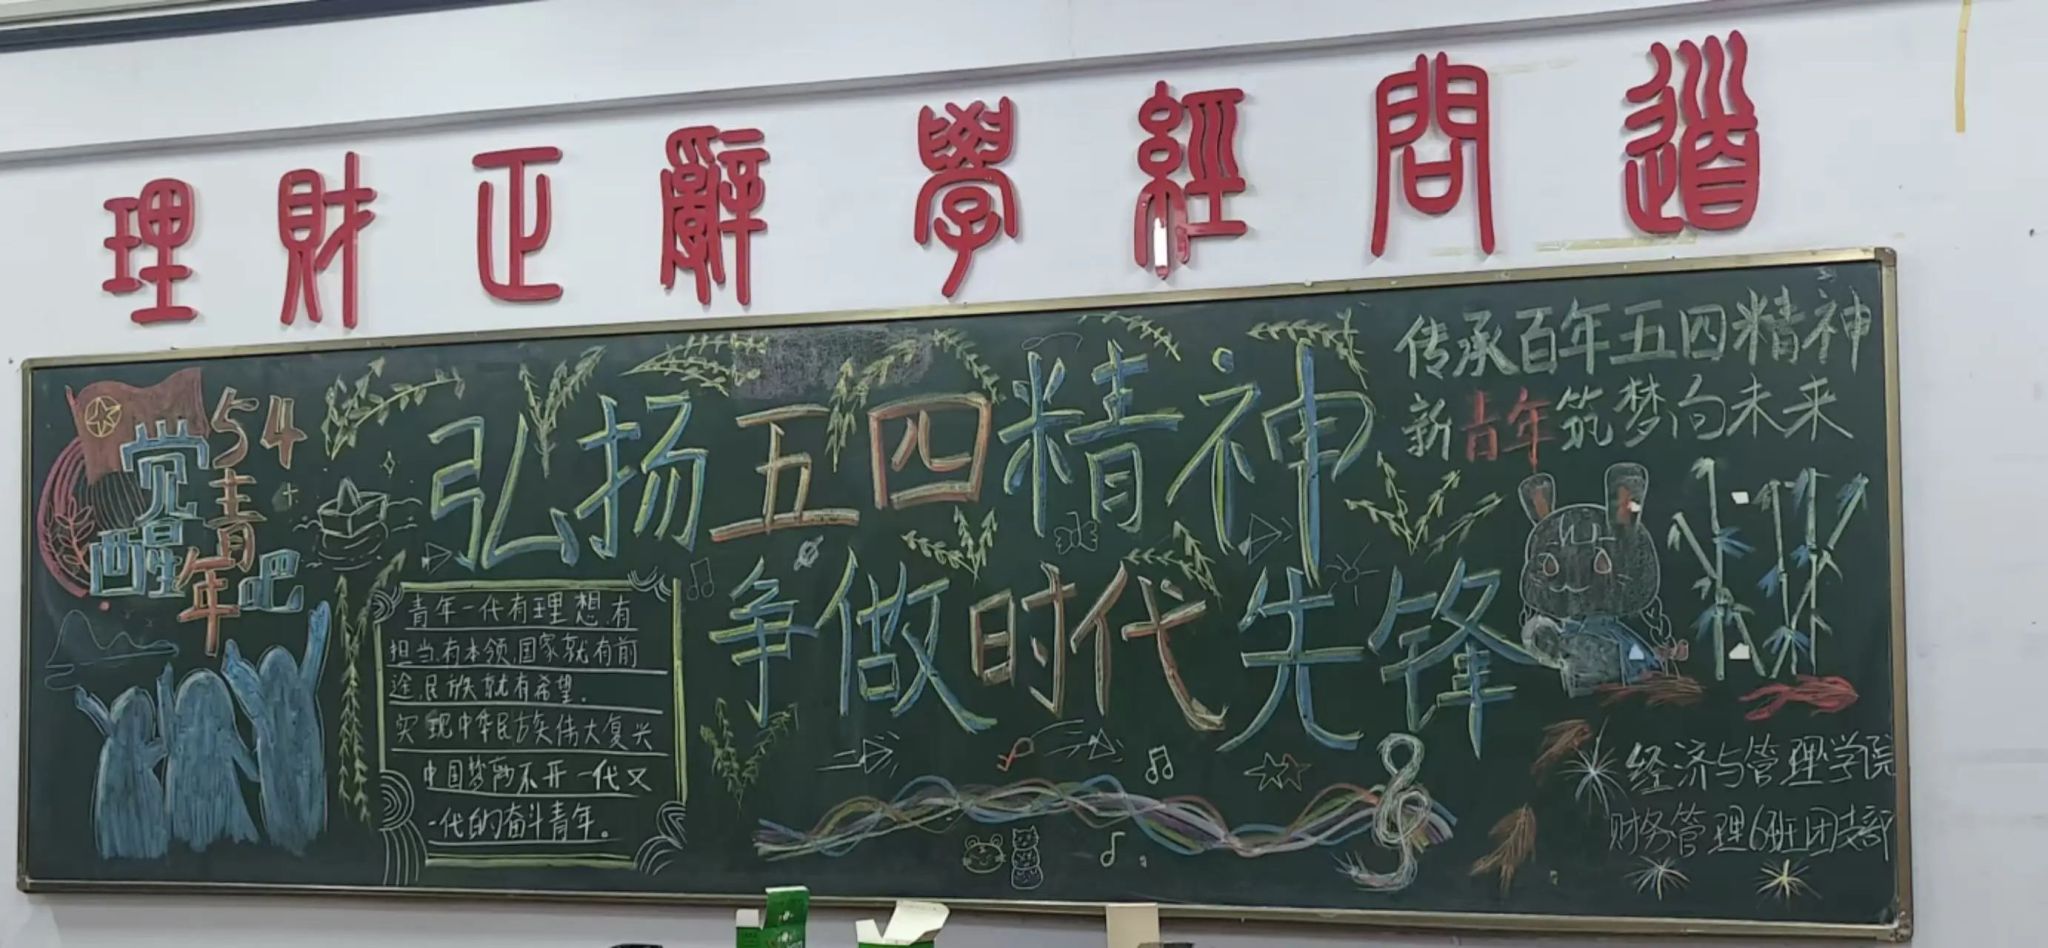 理財正辭學經問道
传承百年五四精神
新青年筑梦向未来
54
觉醒吧
青年
弘扬五四精神
争做时代先锋
青年一代有理想,有
担当,有本领,国家就有前
途,民族就有希望。
实现中华民族伟大复兴
中国梦离不开一代又
一代的奋斗青年。
经济与管理学院
财务管理6班团支部